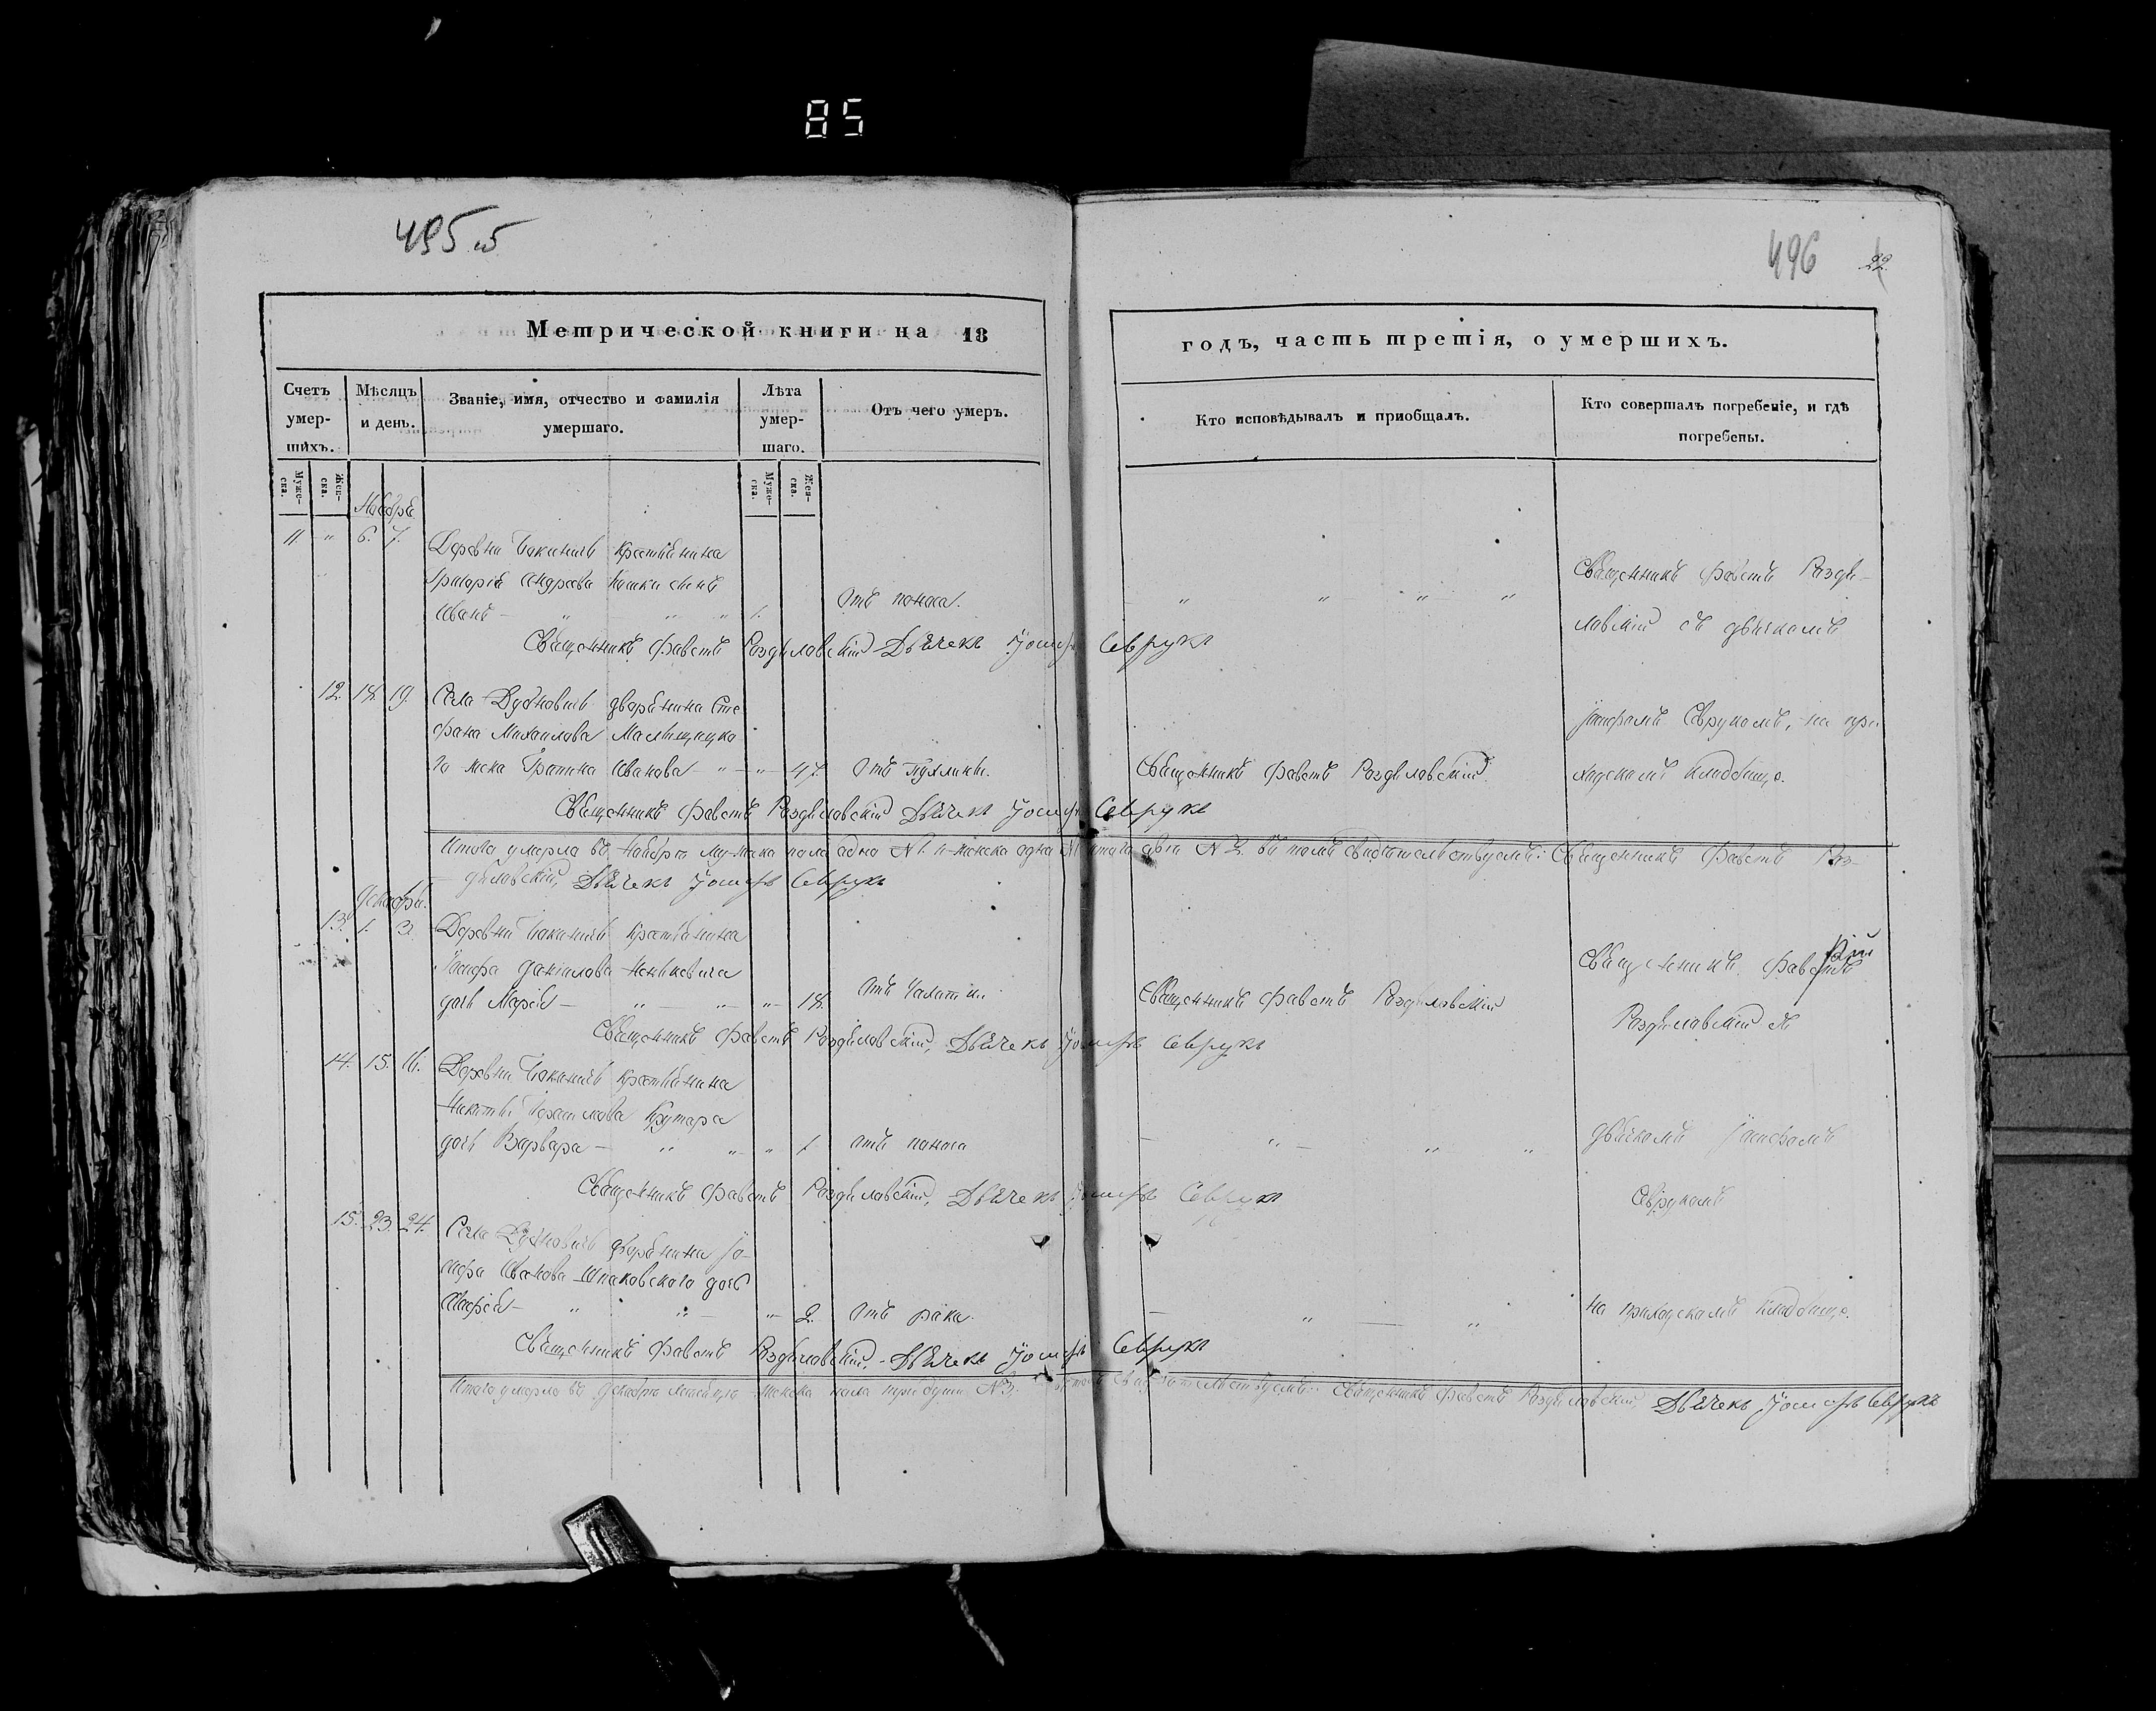 85
495 об
496 22
Метрической книги на 18
годъ, часть третія, о умершихъ.
Счетъ умер-шихъ.
Мѣсяцъ и день.
Званіе, имя, отчество и фамилія умершаго.
Лѣта умер-шаго.
Отъ чего умеръ.
Кто исповѣдывалъ и приобщалъ.
Кто совершалъ погребеніе, и гдѣ погребены.
Муже-ска.
Жен-ска.
Муже-ска.
Жен-ска.
Ноября
11 " 6. 7. Деревни крестьянина
Григорія Андреева сынъ
Иванъ 1. Отъ поноса.
Священникъ Фавстъ Роздѣ-
ловскій съ дьячкомъ
Священникъ Фавстъ Роздѣловскій Дьячекъ Іосифъ Севрукъ
12. 18. 19. Села дворянина Сте
фана Михайлова
го жена Иванова 47. Отъ
Священникъ Фавстъ Роздѣловскій
Іосифомъ Севрукомъ, на при
ходскомъ кладбищѣ.
Священникъ Фавстъ Роздѣловскій Дьячекъ Іосифъ Севрукъ
Итого умерло въ Ноябрѣ мужеска пола одно №1. и женска одна №1 итого двѣ №2. въ томъ свидѣтельствуемъ: Священникъ Фавстъ Роз-
дѣловскій, Дьячекъ Іосифъ Севрукъ
Декабря.
13. 1. 3. Деревни крестьянина
Іосифа Данилова
дочь Марія 18. Отъ
Священникъ Фавстъ Роздѣловскій
Священникъ Фавстъ
Роздѣловскій съ
Священникъ Фавстъ Роздѣловскій, Дьячекъ Іосифъ Севрукъ
14. 15. 16. Деревни крестьянина
Никиты
дочь Варвара 1 отъ поноса
дьячкомъ Іосифомъ
Севрукомъ
Священникъ Фавстъ Роздѣловскій, Дьячекъ Іосифъ Севрукъ
15. 23. 24. Села дворянина Іо-
сифа Иванова дочь
2. Отъ рака.
на приходскомъ кладбищѣ.
Священникъ Фавстъ Роздѣловскій, Дьячекъ Іосифъ Севрукъ
Итого умерло въ Декабрѣ мѣсяцѣ женска пола три души №3. въ томъ свидѣтельствуемъ: Священникъ Фавстъ Роздѣловскій, Дьячекъ Іосифъ Севрукъ